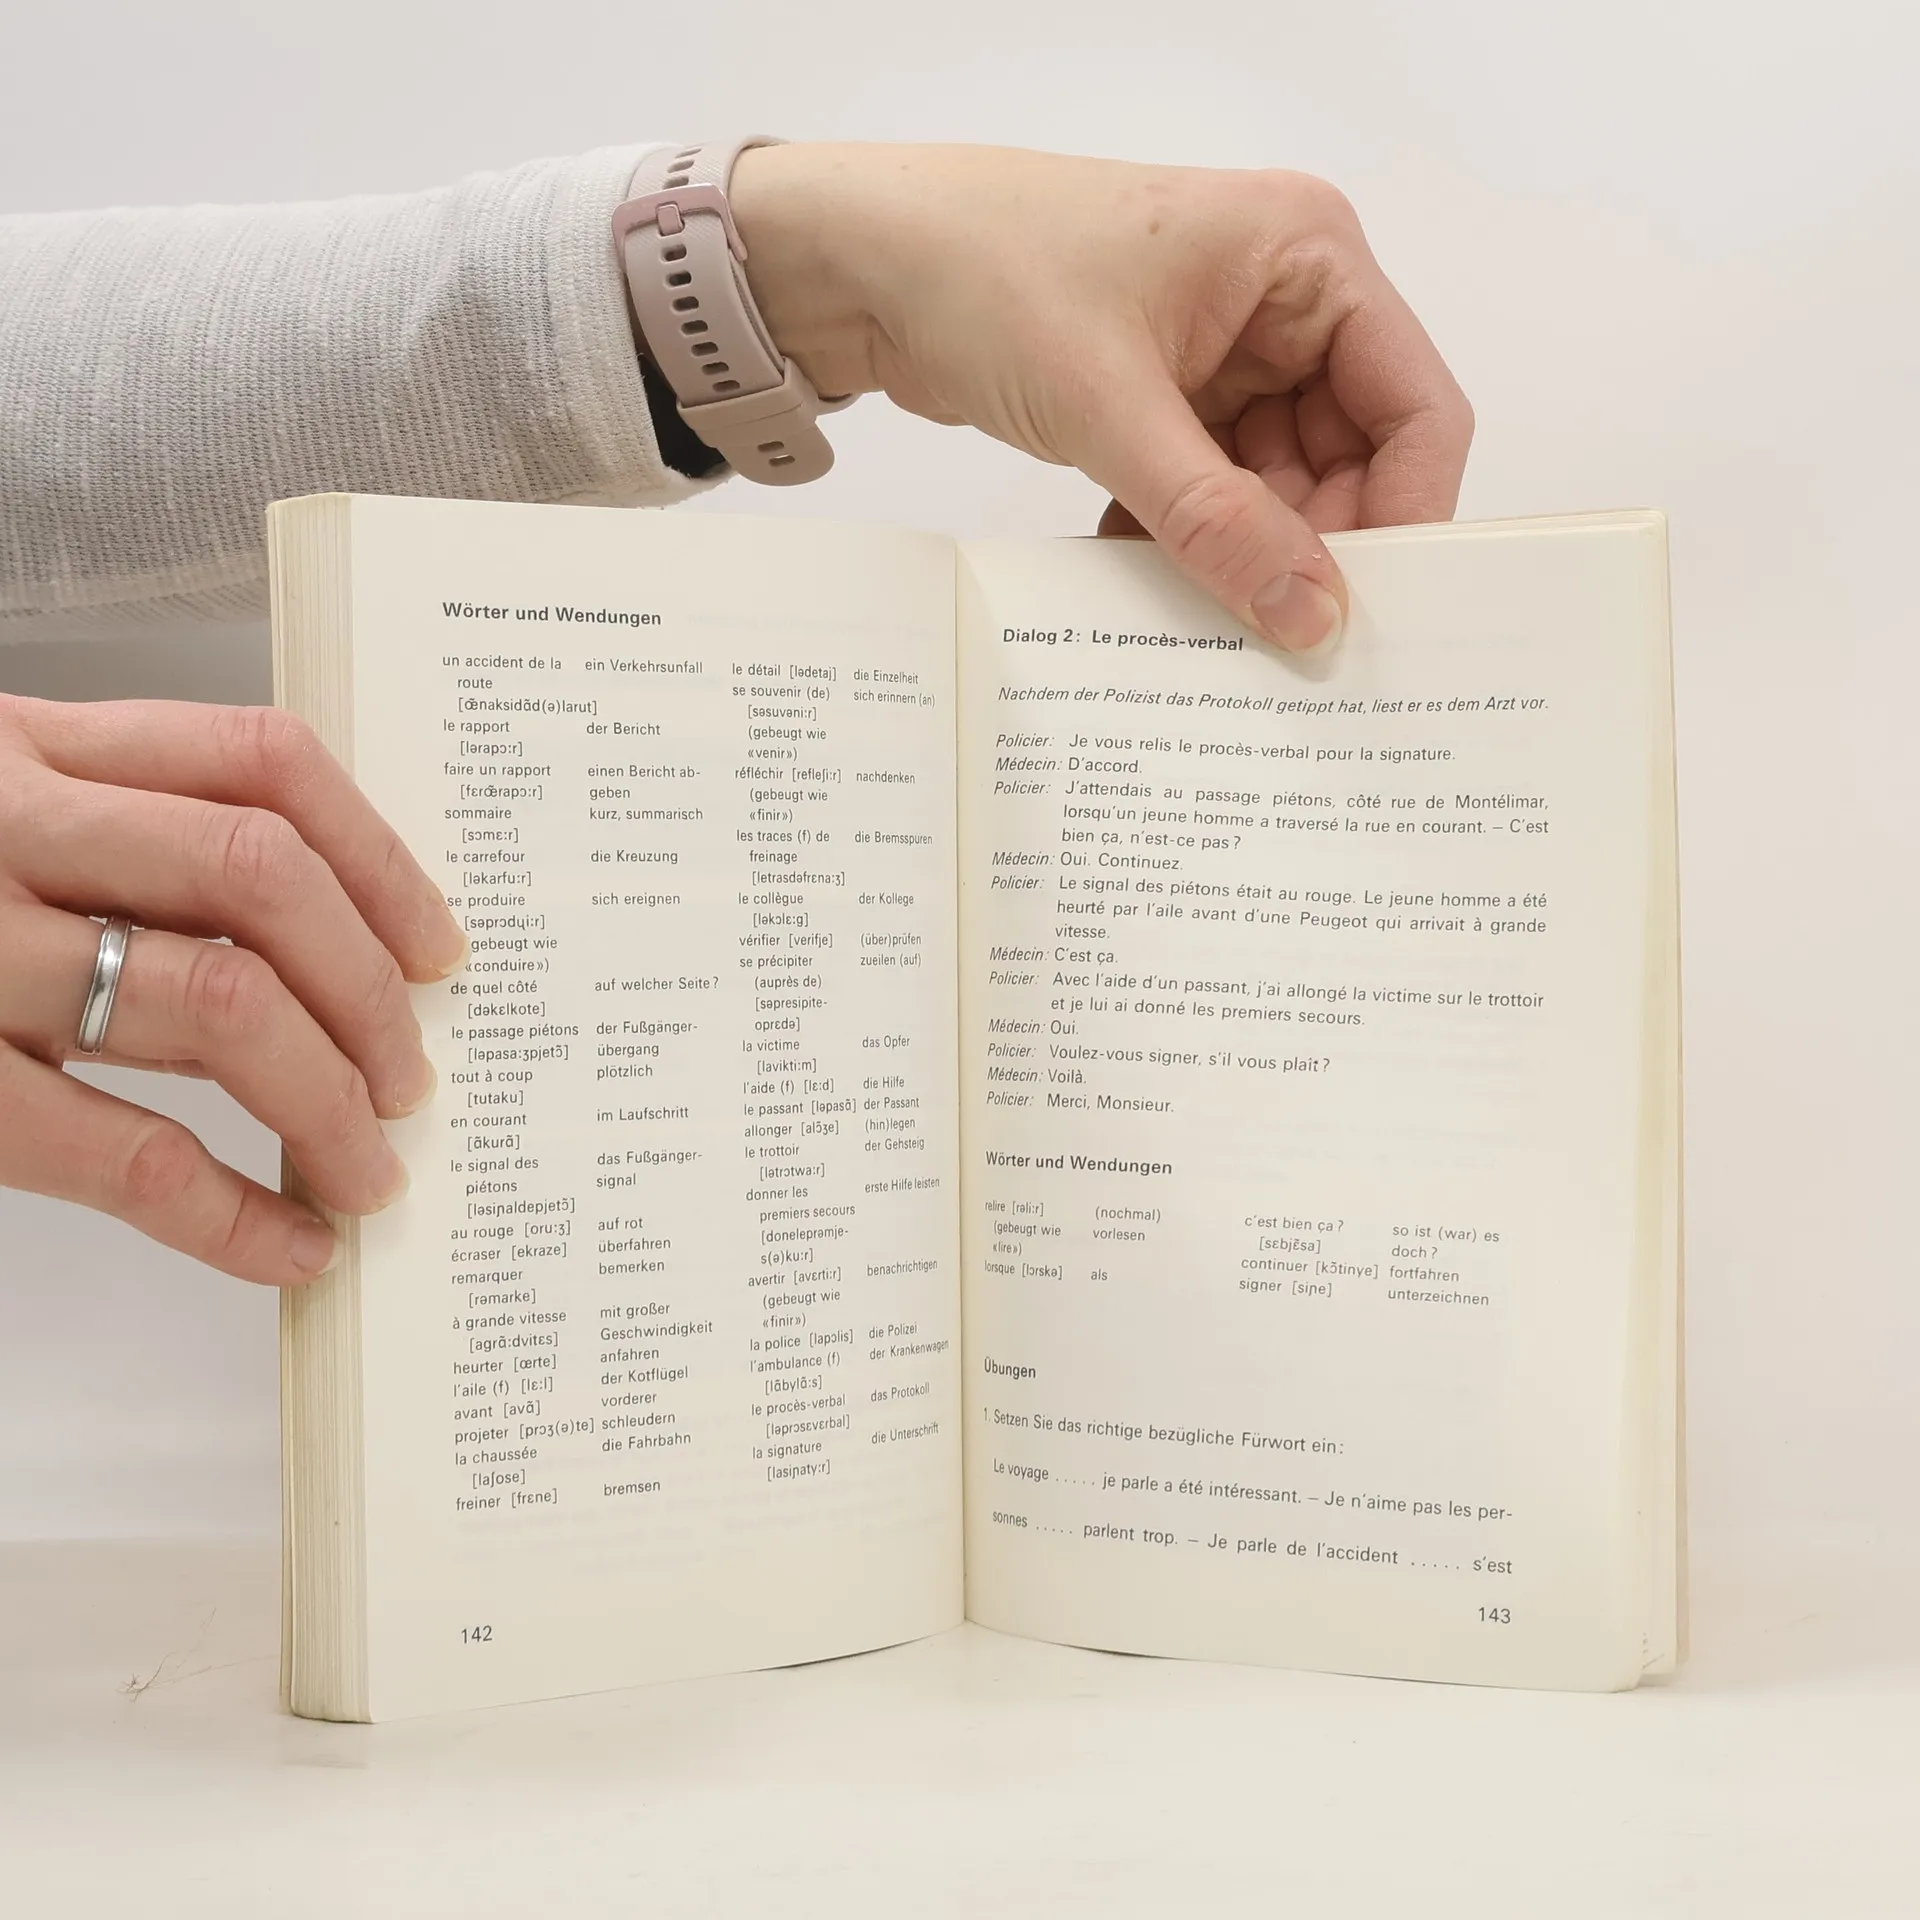 Wörter und Wendungen
un accident de la ein Verkehrsunfall
route
[œ̃naksidãd(ə)larut]
le rapport der Bericht
[lərapɔ:r]
faire un rapport einen Bericht ab-
[fɛrœ̃rapɔ:r] geben
sommaire kurz, summarisch
[sɔmɛ:r]
le carrefour die Kreuzung
[ləkarfu:r]
se produire sich ereignen
[səprɔdɥi:r]
gebeugt wie
«conduire»)
de quel côté auf welcher Seite?
[dəkɛlkote]
le passage piétons der Fußgänger-
[ləpasa:ʒpjetɔ̃] übergang
tout à coup plötzlich
[tutaku]
en courant im Laufschritt
[ãkurã]
le signal des das Fußgänger-
piétons signal
[ləsiɲaldepjetɔ̃]
au rouge [oru:ʒ] auf rot
écraser [ekraze] überfahren
remarquer bemerken
[rəmarke]
à grande vitesse mit großer
[agrã:dvitɛs] Geschwindigkeit
heurter [œrte] anfahren
l'aile (f) [lɛ:l] der Kotflügel
avant [avã] vorderer
projeter [prɔʒ(ə)te] schleudern
la chaussée die Fahrbahn
[laʃose]
freiner [frɛne] bremsen
le détail [lədetaj] die Einzelheit
se souvenir (de) sich erinnern (an)
[səsuvəni:r]
(gebeugt wie
«venir»)
réfléchir [refleʃi:r] nachdenken
(gebeugt wie
«finir»)
les traces (f) de die Bremsspuren
freinage
[letrasdəfrɛna:ʒ]
le collègue der Kollege
[ləkɔlɛ:g]
vérifier [verifje] (über)prüfen
se précipiter zueilen (auf)
(auprès de)
[səpresipite-
oprɛdə]
la victime das Opfer
[lavikti:m]
l'aide (f) [lɛ:d] die Hilfe
le passant [ləpasã] der Passant
allonger [alɔ̃ʒe] (hin)legen
le trottoir der Gehsteig
[lətrɔtwa:r]
donner les erste Hilfe leisten
premiers secours
[doneleprəmje-
s(ə)ku:r]
avertir [avɛrti:r] benachrichtigen
(gebeugt wie
«finir»)
la police [lapɔlis] die Polizei
l'ambulance (f) der Krankenwagen
[lãbylã:s]
le procès-verbal das Protokoll
[ləprɔsɛvɛrbal]
la signature die Unterschrift
[lasiɲaty:r]
142
Dialog 2: Le procès-verbal
Nachdem der Polizist das Protokoll getippt hat, liest er es dem Arzt vor.
Policier: Je vous relis le procès-verbal pour la signature.
Médecin: D'accord.
Policier: J'attendais au passage piétons, côté rue de Montélimar,
lorsqu'un jeune homme a traversé la rue en courant. – C'est
bien ça, n'est-ce pas?
Médecin: Oui. Continuez.
Policier: Le signal des piétons était au rouge. Le jeune homme a été
heurté par l'aile avant d'une Peugeot qui arrivait à grande
vitesse.
Médecin: C'est ça.
Policier: Avec l'aide d'un passant, j'ai allongé la victime sur le trottoir
et je lui ai donné les premiers secours.
Médecin: Oui.
Policier: Voulez-vous signer, s'il vous plaît?
Médecin: Voilà.
Policier: Merci, Monsieur.
Wörter und Wendungen
relire [rəli:r] (nochmal)
(gebeugt wie vorlesen
«lire»)
lorsque [lɔrskə] als
c'est bien ça? so ist (war) es
[sɛbjɛ̃sa] doch?
continuer [kɔ̃tinye] fortfahren
signer [siɲe] unterzeichnen
Übungen
1. Setzen Sie das richtige bezügliche Fürwort ein:
Le voyage ..... je parle a été intéressant. – Je n'aime pas les per-
sonnes ..... parlent trop. – Je parle de l'accident ..... s'est
143